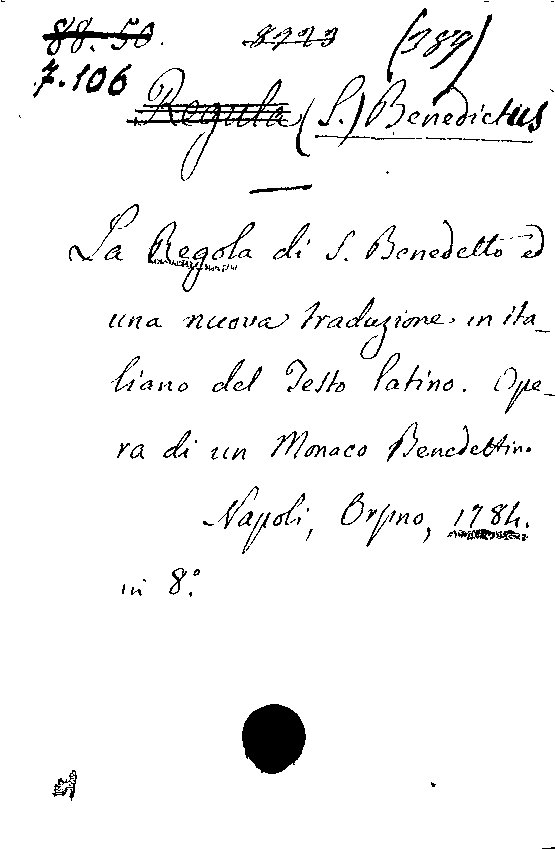 88.50. 8723 (389)
7.106
Regula (S.) Benedictus
La Regola di S. Benedetto ed
una nuova traduzione in ita_
liano del Testo latino. Ope_
ra di un Monaco Benedettin.
Napoli, Orsino, 1784.
in 8.º